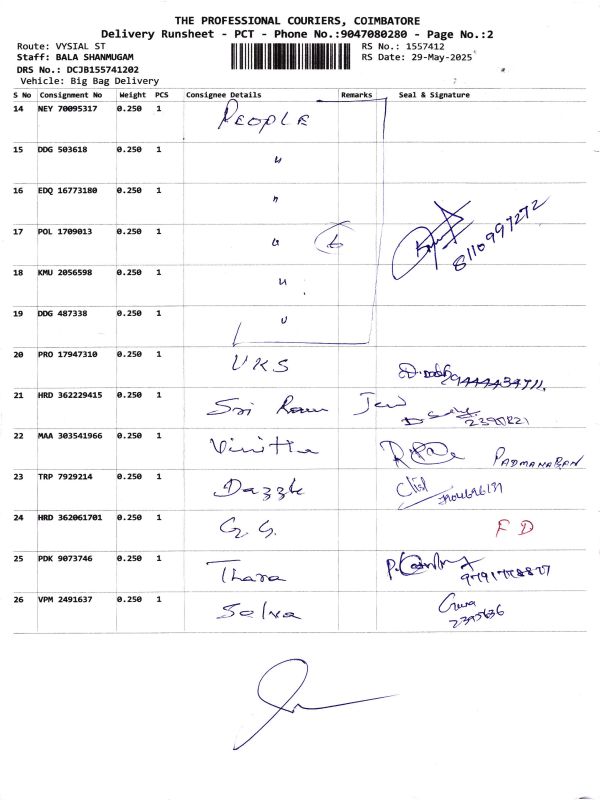 THE PROFESSIONAL COURIERS, COIMBATORE
Delivery Runsheet - PCT - Phone No.:9047080280 - Page No.:2
Route: VYSIAL ST RS No.: 1557412
Staff: BALA SHANMUGAM RS Date: 29-May-2025
DRS No.: DCJB155741202
Vehicle: Big Bag Delivery
S No Consignment No Weight PCS Consignee Details Remarks Seal & Signature
14 NEY 70095317 0.250 1 PEOPLE
15 DDG 503618 0.250 1 "
16 EDQ 16773180 0.250 1 "
17 POL 1709013 0.250 1 " 6
8110997272
18 KMU 2056598 0.250 1 "
19 DDG 487338 0.250 1 "
20 PRO 17947310 0.250 1 UKS
21 HRD 362229415 0.250 1 Sri Ram Jew
22 MAA 303541966 0.250 1 Vinitha PADMANABAN
23 TRP 7929214 0.250 1 Dazzle
24 HRD 362061701 0.250 1 G. G. F D
25 PDK 9073746 0.250 1 Thara
26 VPM 2491637 0.250 1 Selva Guna
2395636